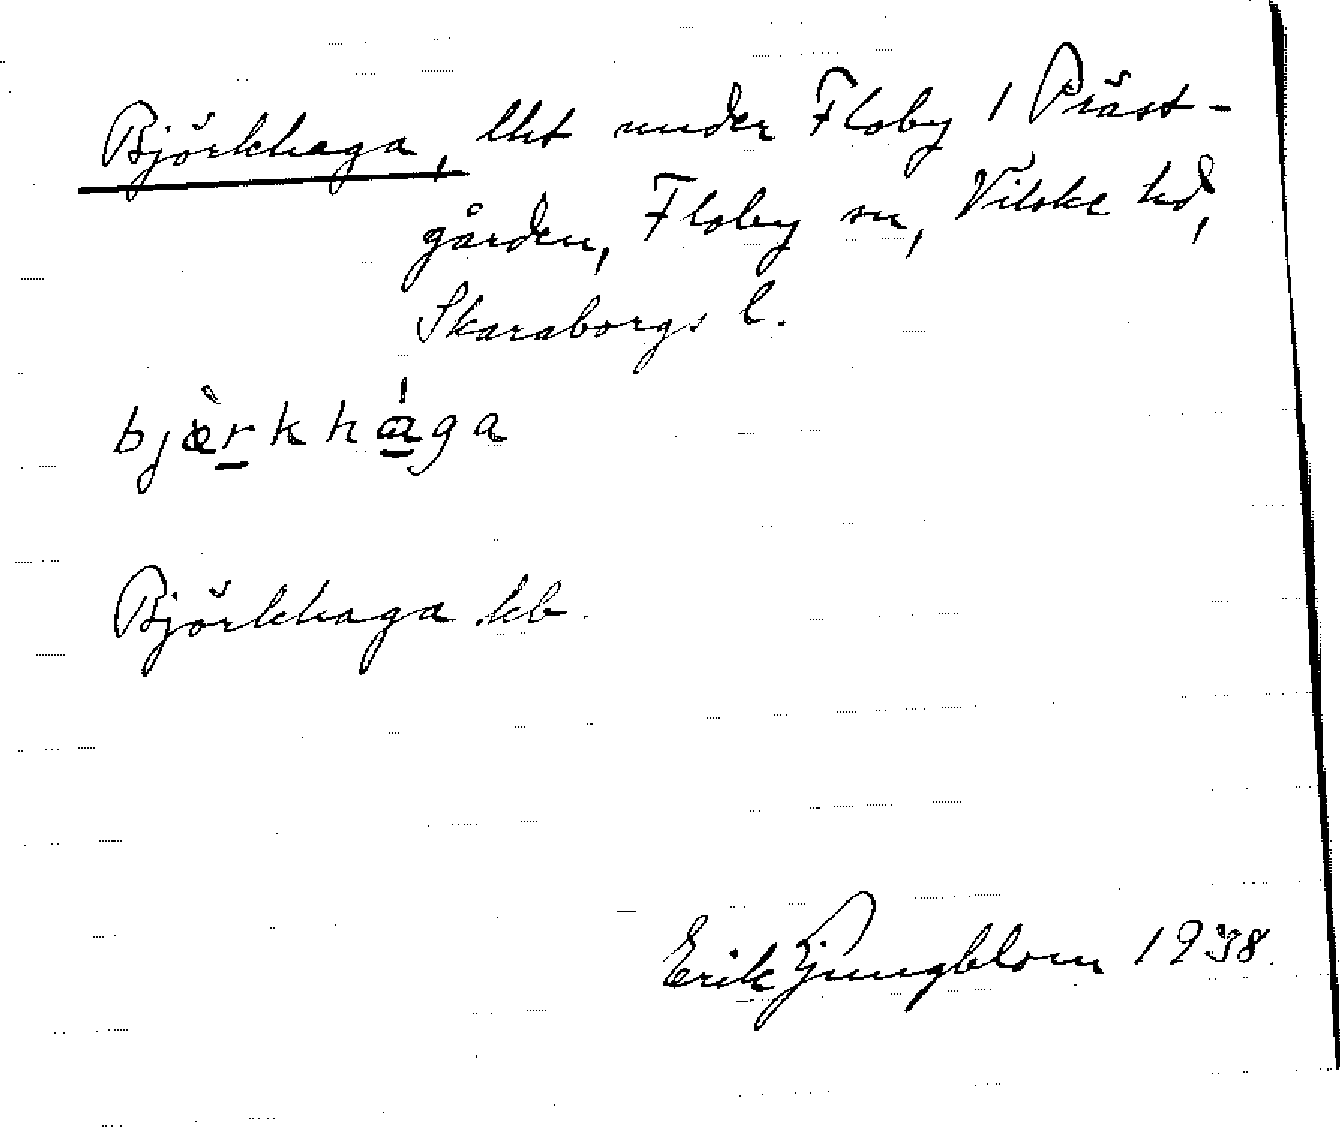 Björkhaga, lht under Floby 1 Präst-
gården, Floby sn, Vilske hd,
Skaraborgs l.
bjæ̀rkhá̱ga
Björkhaga kb.
Erik Ljungblom 1938.